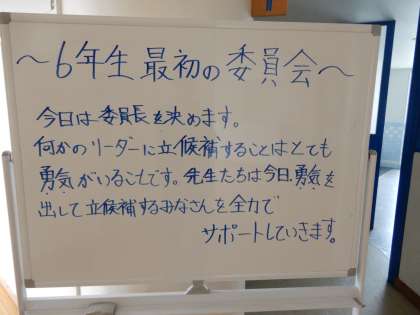 ～6年生 最初の委員会～
今日は委員長を決めます。
何かのリーダーに立候補することはとても
勇気がいることです。先生たちは今日、勇気を
出して立候補するみなさんを全力で
サポートしていきます。